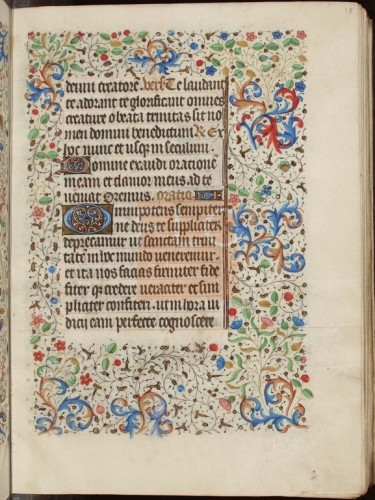 deum creatorē. vers̄ Te laudant
te adorant te glorificant omnes
creature o beata trinitas sit no
men domini benedictum R Ex
hoc nunc et usq; in seculum.
Domine exaudi orationē
meam et clamor meus ad te
veniat Oremus. oratio
Omnipotens sempiter
ne deus te suppliciter
deprecamur ut sanctam trini
tatē in hoc mundo veneremur.
et ita nos facias firmiter fide
liter q; credere veraciter et sim
pliciter confiteri. ut in hora iu
dicij eam perfecte cognoscere